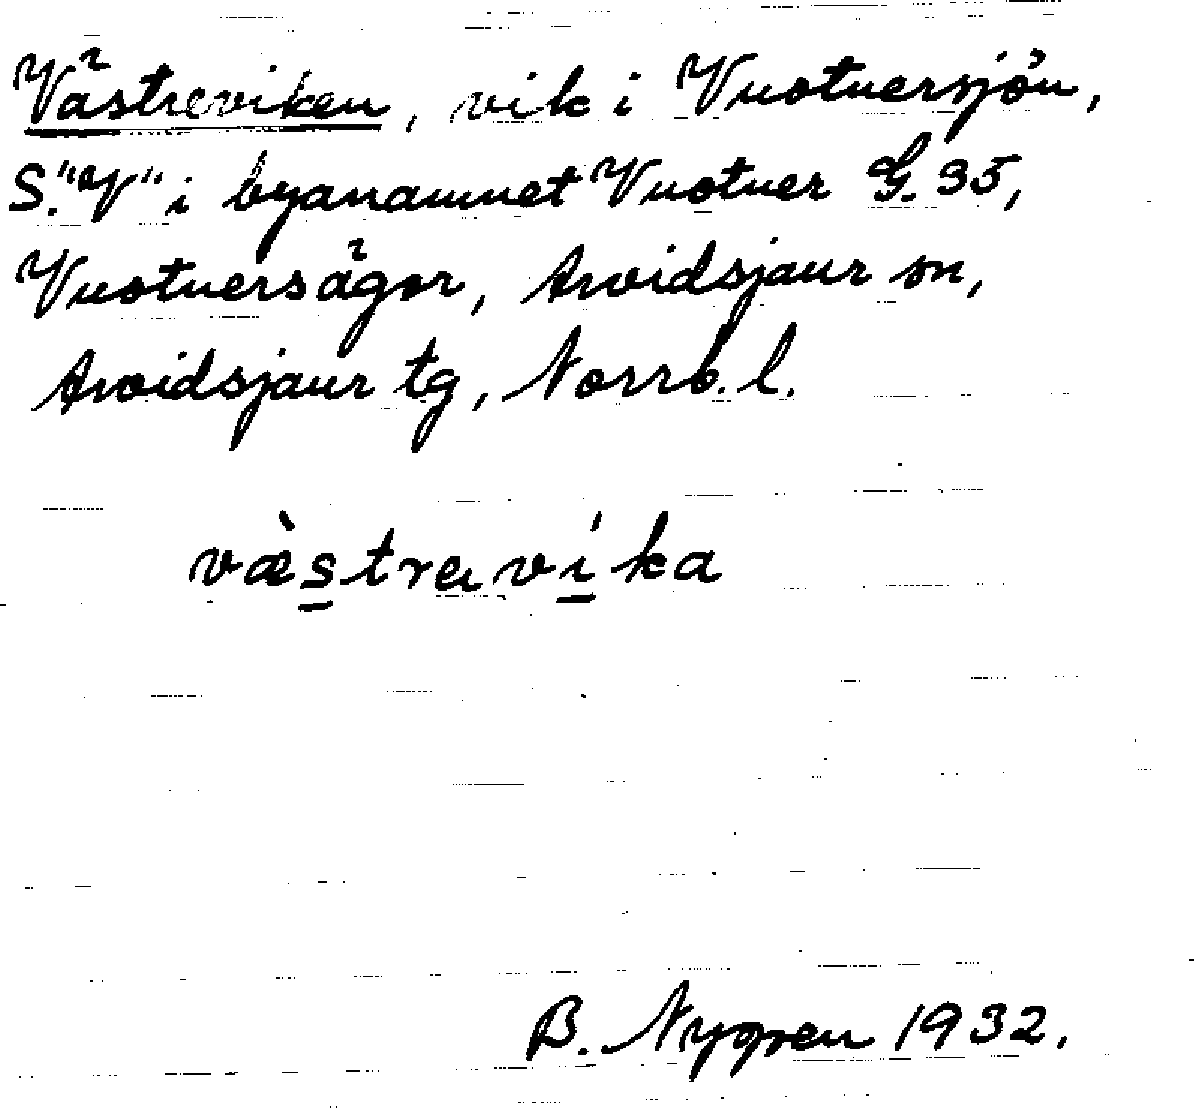 Västreviken, vik i Vuotnersjön,
S. "V" i byanamnet Vuotner G. 35,
Vuotnersägor, Arvidsjaur sn,
Arvidsjaur tg, Norrb. l.
væ̀stravíka
B. Nygren 1932.